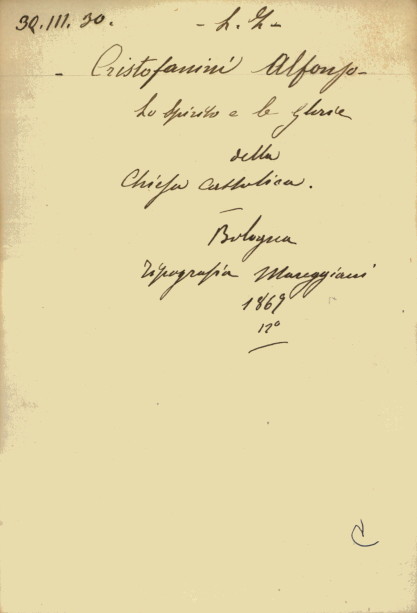 32.III.30.
- L. Z -
- Cristofanini Alfonso -
Lo Spirito e le glorie
della
Chiesa Cattolica.
Bologna
Tipografia Mareggiani
1869
12°